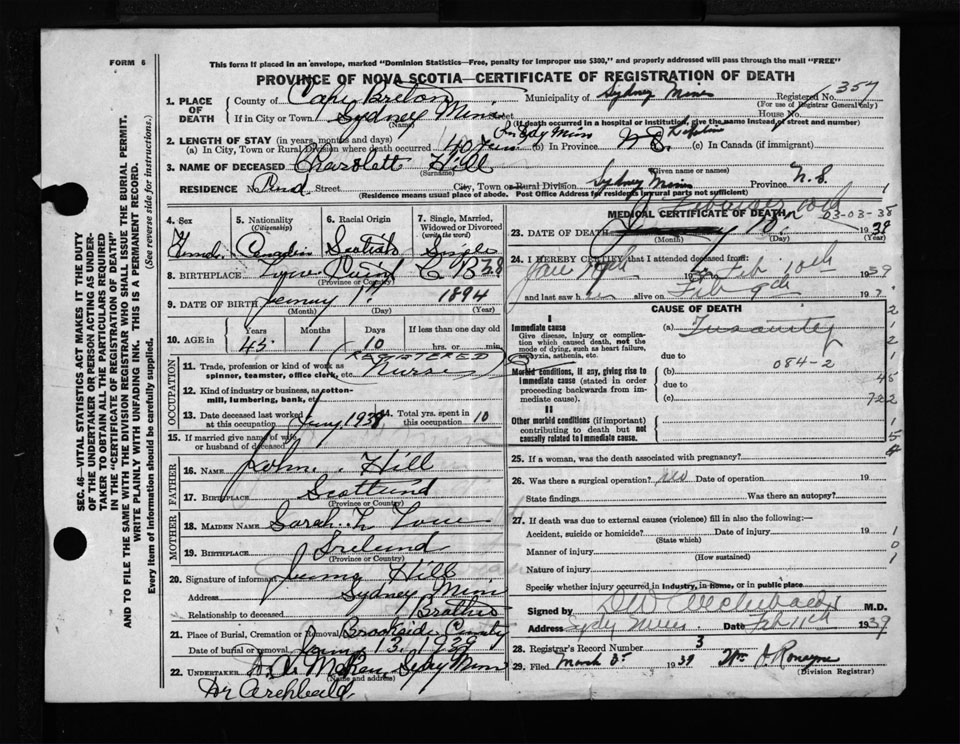 FORM 6
This form if mailed in an envelope, marked "Dominion Statistics—Free, penalty for improper use $300," and properly addressed will pass through the mail "FREE"
PROVINCE OF NOVA SCOTIA—CERTIFICATE OF REGISTRATION OF DEATH
1. PLACE OF DEATH
County of Cape Breton Municipality of Sydney Mines Registered No. 357
(For use of Registrar General only)
If in City or Town Sydney Mines Street House No.
(Name) (If death occurred in a hospital or institution, give the name instead of street and number)
2. LENGTH OF STAY (in years, months and days)
(a) In City, Town or Rural Division where death occurred 40 Years (b) In Province N.S. Lifetime (c) In Canada (if immigrant)
3. NAME OF DECEASED Charolett Hill
(Surname) (Given name or names)
RESIDENCE No. Pond Street City, Town or Rural Division Sydney Mines Province N.S.
(Residence means usual place of abode. Post Office Address for residents in rural parts not sufficient)
4. Sex
5. Nationality (Citizenship)
6. Racial Origin
7. Single, Married, Widowed or Divorced (write the word)
Canadian Scotish Single
8. BIRTHPLACE C B
(Province or County)
9. DATE OF BIRTH 1894
(Month) (Day) (Year)
10. AGE in Years Months Days If less than one day old
45 1 10 hrs. or min.
OCCUPATION
11. Trade, profession or kind of work as spinner, teamster, office clerk, etc. (REGISTERED) Nurse
12. Kind of industry or business, as cotton-mill, lumbering, bank, etc.
13. Date deceased last worked at this occupation 1938 14. Total yrs. spent in this occupation 10
15. If married give name of wife or husband of deceased
FATHER
16. NAME John Hill
17. BIRTHPLACE Scotland
(Province or County)
MOTHER
18. MAIDEN NAME Sarah
19. BIRTHPLACE Ireland
(Province or Country)
20. Signature of informant Hill
Address Sydney Mines
Relationship to deceased Brother
21. Place of Burial, Cremation or Removal Brookside
Date of burial or removal 13, 1939
22. UNDERTAKER Sydney Mines
(Name and address)
Dr Archbald
MEDICAL CERTIFICATE OF DEATH
03-03-38
23. DATE OF DEATH 1939
(Month) (Day) (Year)
24. I HEREBY CERTIFY that I attended deceased from:
Jan to Feb 10th 1939
and last saw her alive on Feb 9th 193
CAUSE OF DEATH
I
Immediate cause
Give disease, injury or complication which caused death, not the mode of dying, such as heart failure, asphyxia, asthenia, etc.
(a) Insanity
due to
Morbid conditions, if any, giving rise to immediate cause (stated in order proceeding backwards from immediate cause).
(b) 084-2
due to
(c)
II
Other morbid conditions (if important) contributing to death but not causally related to immediate cause.
25. If a woman, was the death associated with pregnancy?
26. Was there a surgical operation? No Date of operation 19
State findings Was there an autopsy?
27. If death was due to external causes (violence) fill in also the following:—
Accident, suicide or homicide? Date of injury 19
(State which)
Manner of injury
(How sustained)
Nature of injury
Specify whether injury occurred in industry, in home, or in public place
Signed by Archibald M.D.
Address Sydney Mines Date Feb 11th 1939
28. Registrar's Record Number 3
29. Filed March 1939
(Division Registrar)
SEC. 46—VITAL STATISTICS ACT MAKES IT THE DUTY OF THE UNDERTAKER OR PERSON ACTING AS UNDERTAKER TO OBTAIN ALL THE PARTICULARS REQUIRED IN THE "CERTIFICATE OF REGISTRATION OF DEATH" AND TO FILE THE SAME WITH THE DIVISION REGISTRAR WHO SHALL ISSUE THE BURIAL PERMIT.
WRITE PLAINLY WITH UNFADING INK. THIS IS A PERMANENT RECORD.
Every item of information should be carefully supplied. (See reverse side for instructions.)